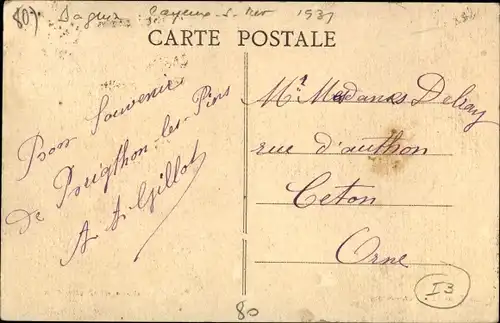 807 Cayeux-s-Mer 1931
CARTE POSTALE
Bon Souvenir
De Brighton-les-Pins
A. A. Gillot
Mr Madame Delray
rue d'authon
Ceton
Orne
I3
80